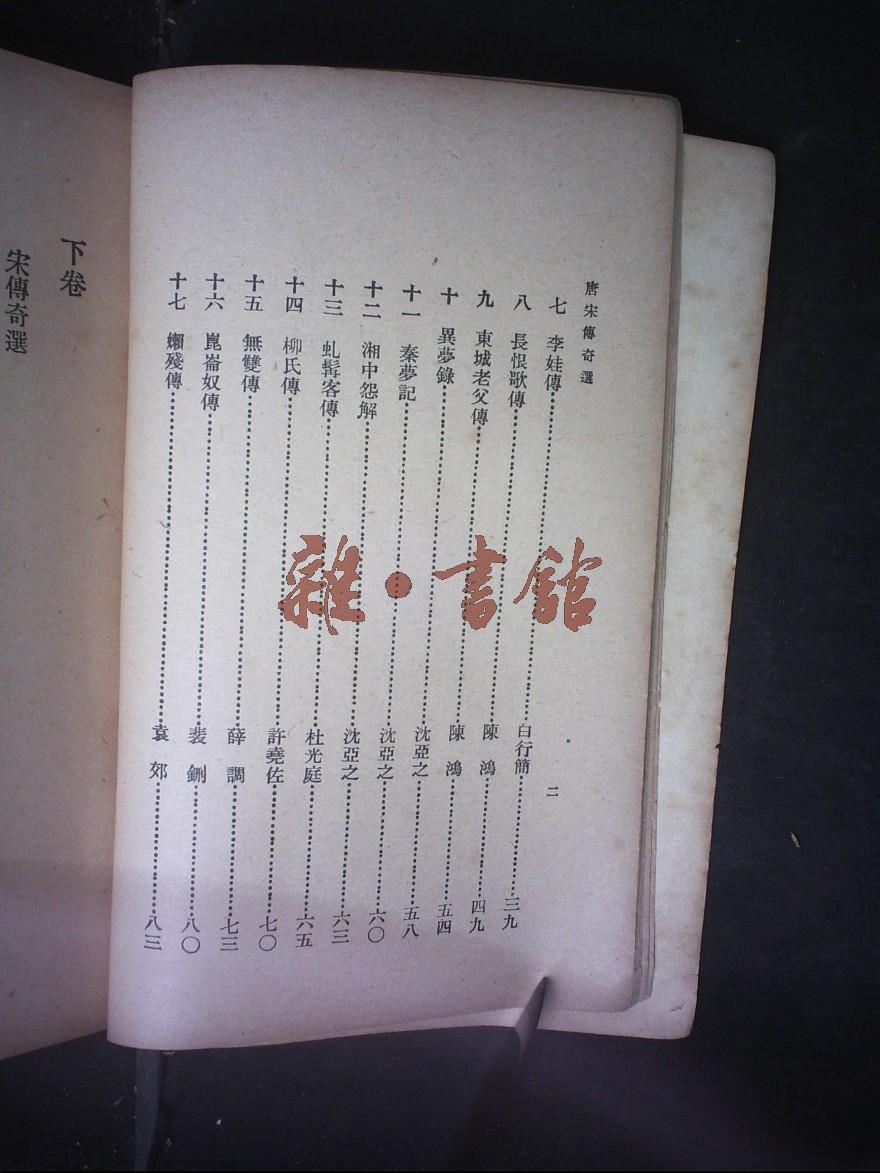 唐宋傳奇選
二
七 李娃傳……白行簡……三九
八 長恨歌傳……陳鴻……四九
九 東城老父傳……陳鴻……五四
十 異夢錄……沈亞之……五八
十一 秦夢記……沈亞之……六〇
十二 湘中怨解……沈亞之……六三
十三 虬髯客傳……杜光庭……六五
十四 柳氏傳……許堯佐……七〇
十五 無雙傳……薛調……七三
十六 崑崙奴傳……裴鉶……八〇
十七 嬾殘傳……袁郊……八三
下卷
宋傳奇選
雜·書館